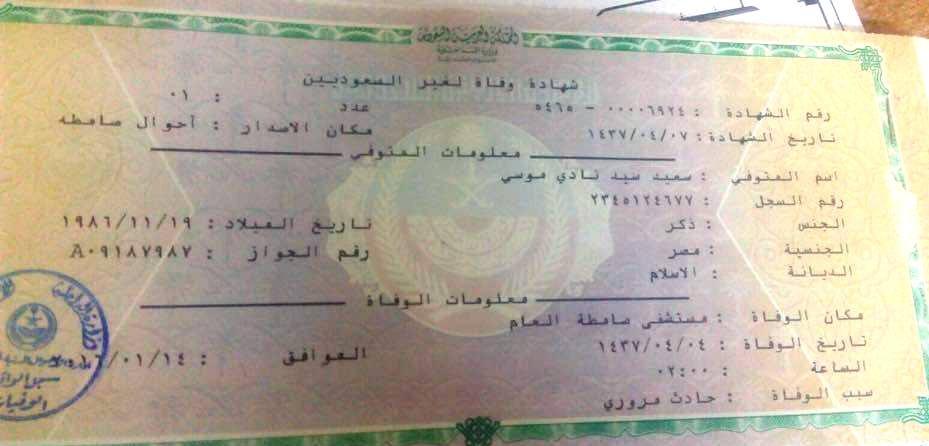 المملكة العربية السعودية
وزارة الداخلية
شهادة وفاة لغير السعوديين
رقم الشهادة : ٠٠٠٠٦٩٢٤ - ٥٤٦٥ عدد : ٠١
تاريخ الشهادة : ١٤٣٧/٠٤/٠٧ مكان الاصدار : أحوال صامطه
معلومات المتوفي
اسم المتوفي : سعيد سيد نادي موسي
رقم السجل : ٢٣٤٥١٢٤٦٧٧
الجنس : ذكر تاريخ الميلاد : ١٩٨٦/١١/١٩
الجنسية : مصر رقم الجواز : A٠٩١٨٧٩٨٧
الديانة : الاسلام
معلومات الوفاة
مكان الوفاة : مستشفى صامطة العام
تاريخ الوفاة : ١٤٣٧/٠٤/٠٤ الموافق : ٦/٠١/١٤
الساعة : ٠٢:٠٠
سبب الوفاة : حادث مروري
وزارة الداخلية
الوفيات